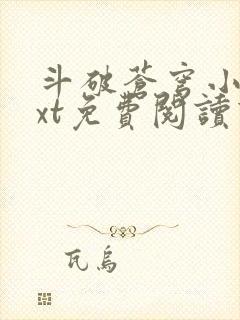 斗破苍穹小
xt免費閱讀
瓦烏